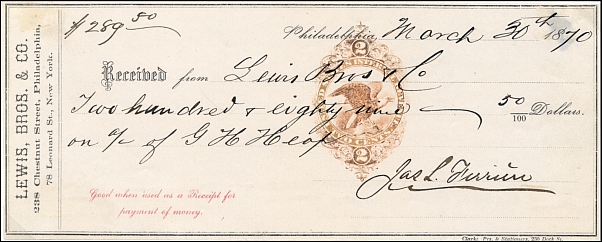 LEWIS, BROS. & CO.
238 Chestnut Street, Philadelphia,
78 Leonard St., New York.
$289 50
Philadelphia, March 30th 1870
Received from Lewis Bros & Co
Two hundred & eighty nine — 50/100 Dollars.
on a/c of G H Heap
2
TWO CENTS
2
Jas L.
Good when used as a Receipt for
payment of money.